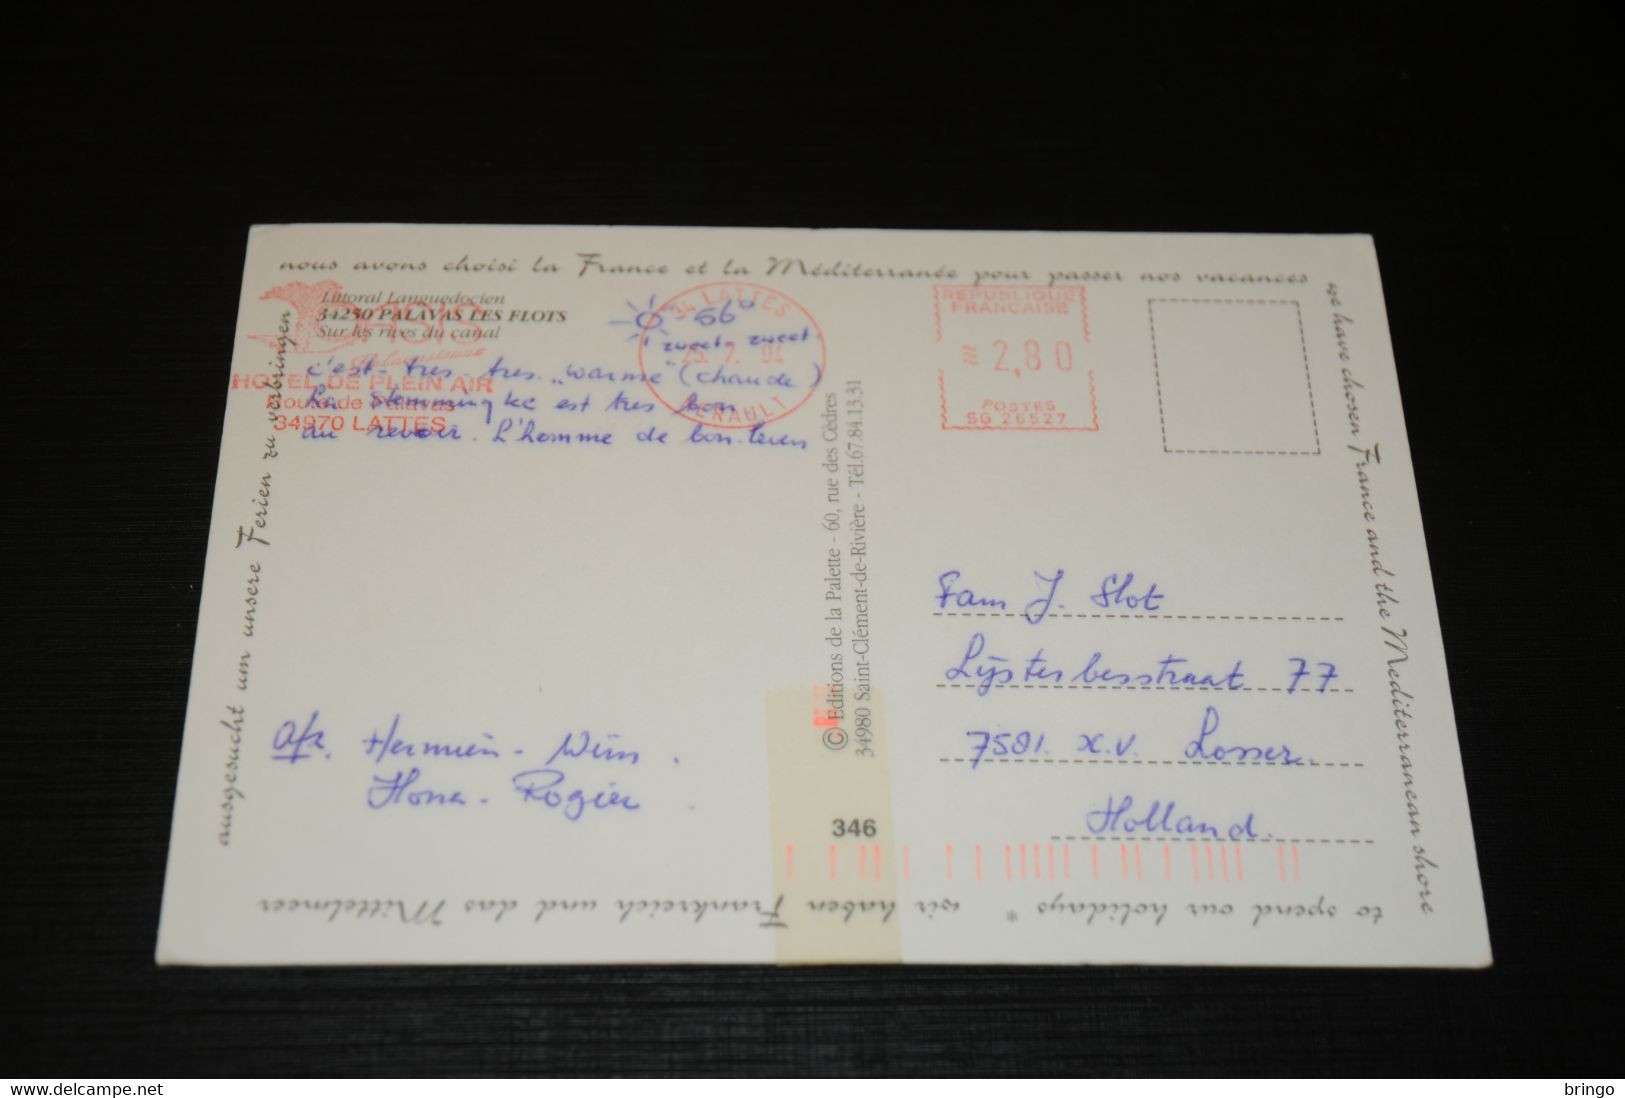 nous avons choisi la France et la Méditerranée pour passer nos vacances
we have chosen France and the Mediterranean shore
to spend our holidays * wir haben Frankreich und das Mittelmeer
ausgesucht um unsere Ferien zu verbringen
Littoral Languedocien
34250 PALAVAS LES FLOTS
Sur les rives du canal
HOTEL DE PLEIN AIR
Route de Palavas
34970 LATTES
34 LATTES
25. 7. 94
HERAULT
REPUBLIQUE
FRANCAISE
2,80
POSTES
SG 26527
56°
zweet zweet
c'est - tres - tres - „warme" (chaude)
La stemming ke est tres bon
au revoir. L'homme de bon-leven
© Editions de la Palette - 60, rue des Cèdres
34980 Saint-Clément-de-Rivière - Tél.67.84.13.31
Fam J. Slot
Lijsterbesstraat 77
7581. X.V. Losser
Holland.
Afz. Hermien - Wim
Rogier
346
bringo